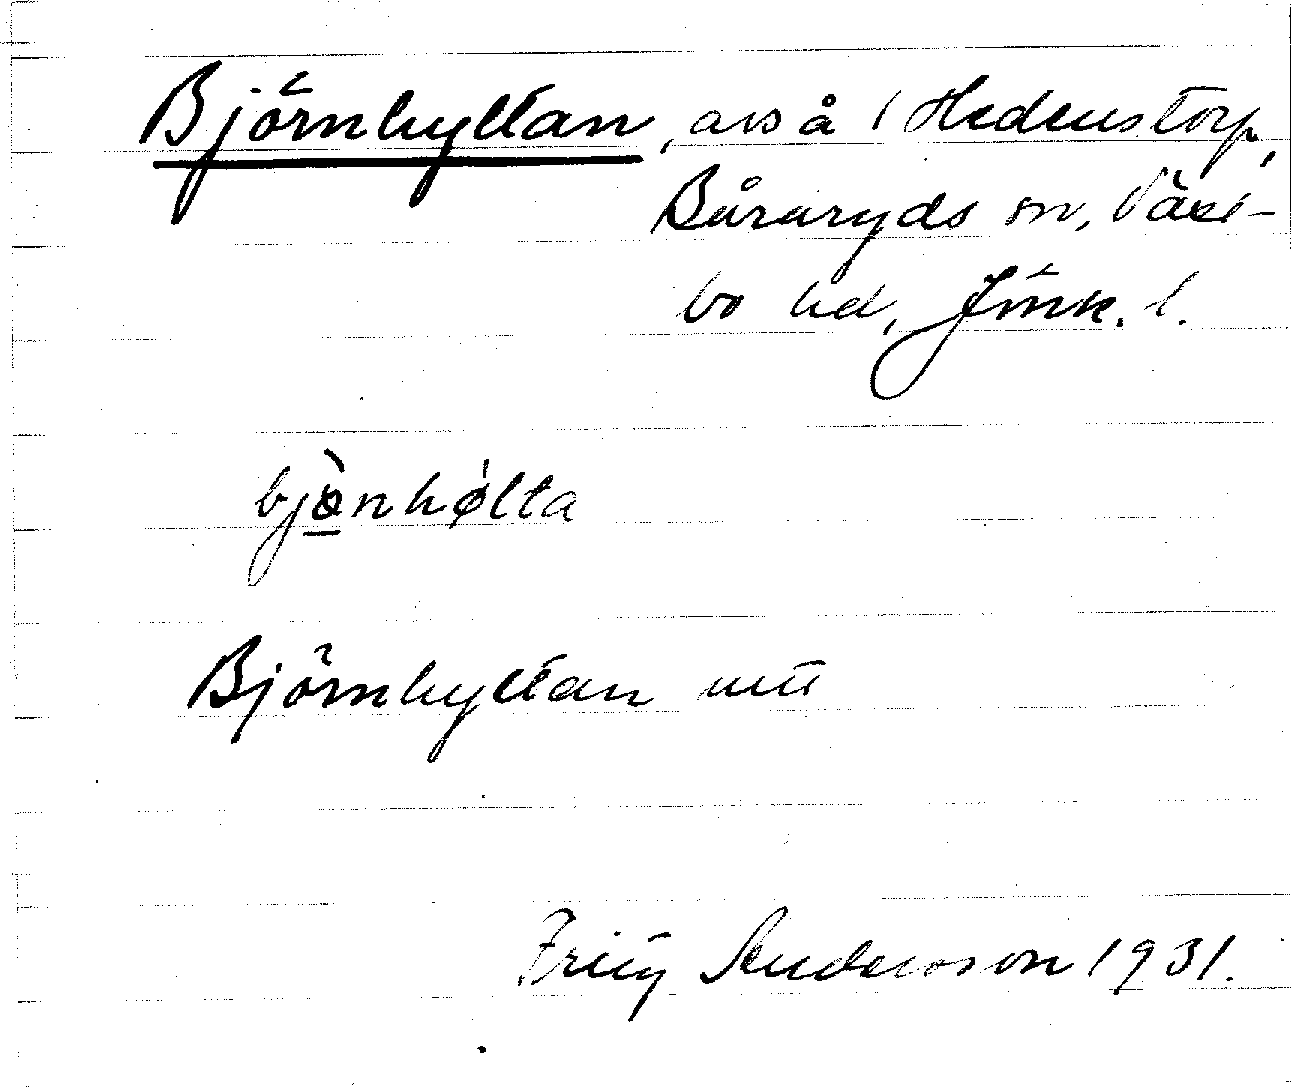 Björnhyltan, avs å i Hedenstorp,
Båraryds sn, Väst-
bo hd, Jönk. l.
bjò̠nhǿlta
Björnhyltan
Fritz Andersson 1931.